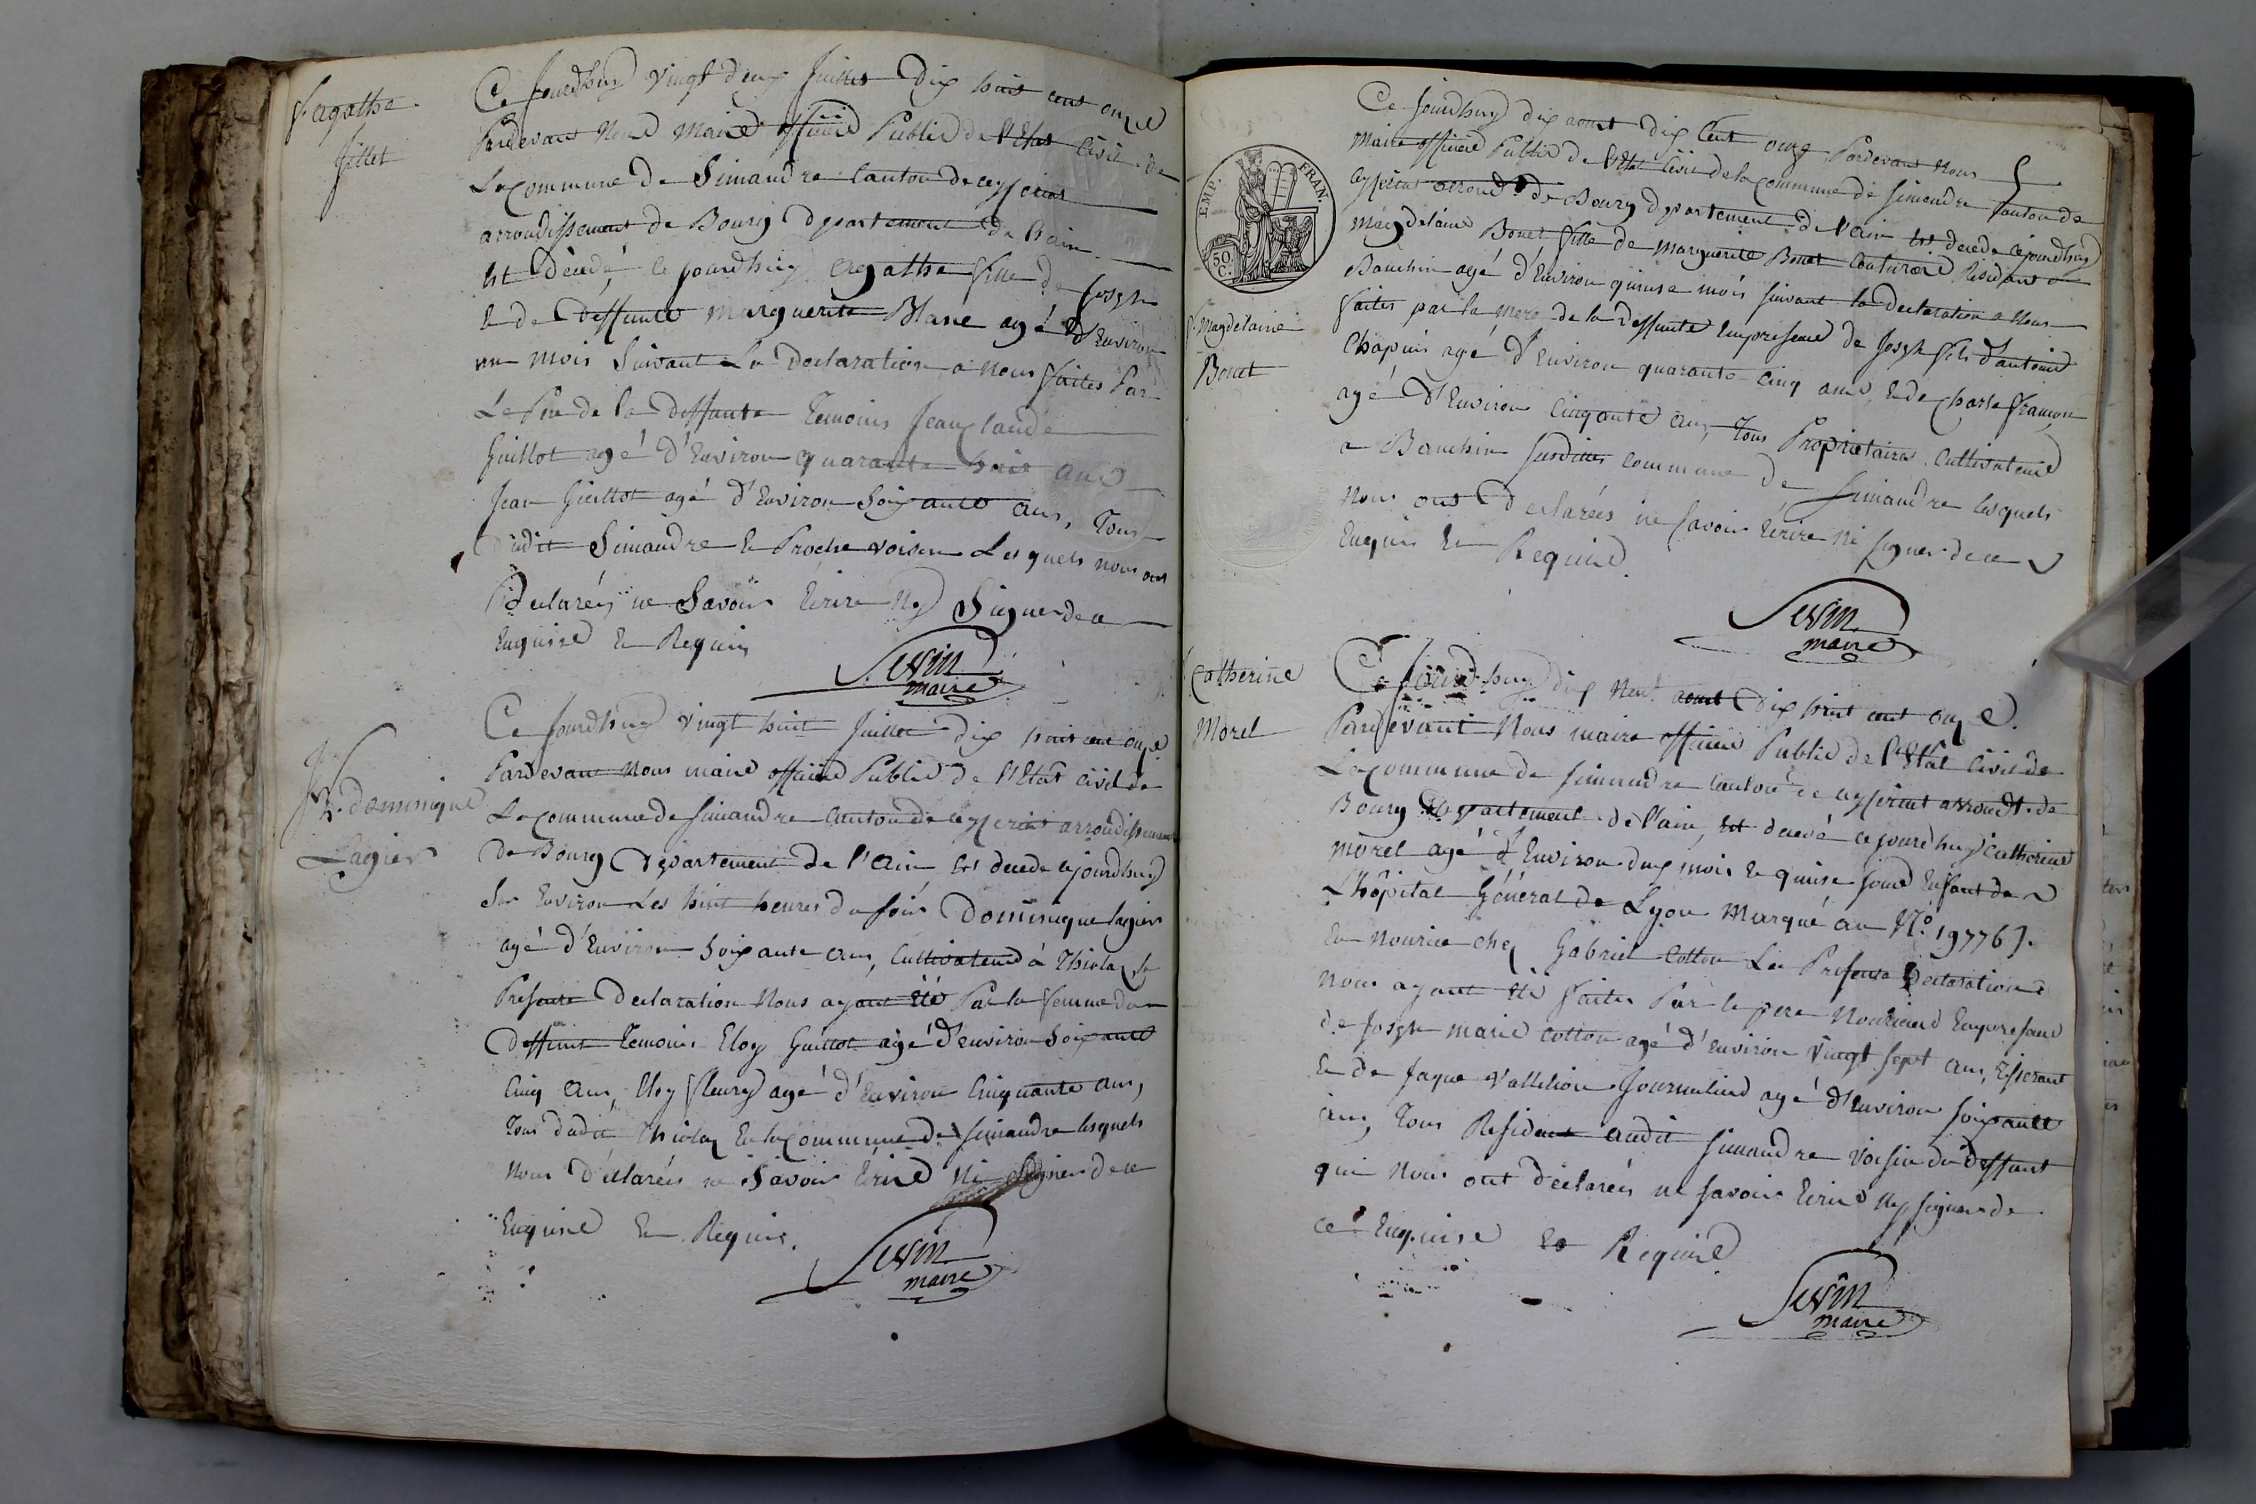 f. agathe
fillet
Ce Jourdhuy vingt deux Juillet Dix huit cent onze
Pardevant Nous Maire officier Public de l'Etat Civil de
La Commune de Simandre Canton de ceyseriat
arrondissement de Bourg Departement de l'ain
Est Décédé, ce jourdhuy agathe fille de Joseph
& de Deffunte Marguerite Blanc agé d'Environ
un mois Suivant La Declaration a Nous faites Par
Le Pere de la Deffunte Temoins Jean Claude
Guillot agé d'Environ quarante huit ans
Jean Guillot agé d'Environ Soixante ans, Tous
dudit Simandre & Proche voisin Lesquels nous ont
Declarés ne Savoir Ecrire Ny Signer de ce
Enquise & Requis
Sevin
maire
h. dominique
Lagier
Ce Jourdhuy vingt huit Juillet dix huit cent onze
Pardevant Nous maire officier Public de l'Etat Civil de
La Commune de Simandre Canton de ceyseriat arrondissement
de Bourg Departement de l'Ain Est decede cejourdhuy
Sur Environ Les huit heures du soir Dominique lagier
agé d'Environ Soixante ans, Cultivateur à Thiolaz la
Presente Declaration Nous ayant été Par la femme du
Deffunt Temoins Eloy Guillot agé d'environ Soixante
Cinq ans, Eloy fleury agé d'Environ Cinquante ans,
Tous dudit Thiolaz En la Commune de Simandre lesquels
Nous Déclarés ne Savoir Ecrire Ni Signer de ce
Enquise & Requis.
Sevin
maire
EMP. FRAN.
50 C.
f. Magdelaine
Bonet
Ce Jourdhuy dix aout dix Cent onze Pardevant Nous
Maire officier Public de l'Etat Civil de la Commune de Simandre Canton de
ceyseriat arrond. de Bourg departement de l'ain Est decede cejourdhuy
Magdelaine Bonet fille de Marguerite Bonet Couturiere Residant a
Bauchin agé d'Environ quinse mois suivant la declaration a Nous
faites par la Mere de la Deffunte En presence de Joseph fils d'antoine
Chapuis agé d'Environ quarante cinq ans, & de Charle francon
agé d'Environ Cinquante ans, Tous Proprietaires Cultivateurs
a Bauchin susdites commune de Simandre lesquels
Nous ont Declarés ne savoir Ecrire Ni signer de ce
Enquis & Requise.
Sevin
maire
Catherine
Morel
Ce Jourdhuy dix Neuf aout Dix huit cent onze.
Pardevant Nous maire officier Public de l'Etat Civil de
La Commune de Simandre Canton de ceyseriat arrondt. de
Bourg Departement de l'ain, Est decede cejourdhuy Catherine
Morel agé d'Environ deux mois & quinse jours Enfant de
L'hôpital Général de Lyon Marqué au N°. 19776).
En Nourice chez Gabriel Cotton La Presente Declaration
Nous ayant été faites Par le pere Nouricier En presence
de Joseph marie Cotton agé d'Environ vingt sept ans, Tisserant
& de Jaque Vallelion Journalier agé d'Environ soixante
ans, Tous Residant audit Simandre voisin du Deffunt
qui Nous ont déclarés ne savoir Ecrire Ny signer de
ce Enquise & Requise
Sevin
maire